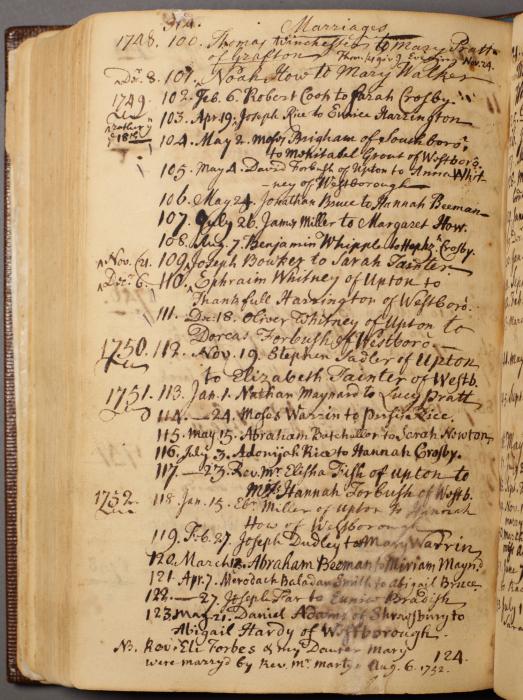 Marriages
1748. 100. Thomas Winchester to Mary Pratt
of Grafton Thanksgivg Evening Nov. 24.
Decr. 8. 101. Noah How to Mary Walker
1749. 102. Feb. 6. Robert Cook to Sarah Crosby.
103. Apr. 19. Joseph Rice to Eunice Harrington
104. May 2. Moses Brigham of Southboro.
to Mehitabel Grout of Westboro.
105. May 4. David Forbush of Upton to Anna Whit-
-ney of Westborough
106. May 24. Jonathan Bruce to Hannah Beeman
107. July 26. James Miller to Margaret How.
108. 7. Benjamin Whipple to Crosby.
Nov. 109. Joseph Bowker to Sarah Tainter
Decr. 6. 110. Ephraim Whitney of Upton to
Thankfull Harrington of Westboro.
111. Dec. 18. Oliver Whitney of Upton to
Dorcas Forbush of Westboro
1750. 112. Nov. 19. Stephen Sadler of Upton
to Elizabeth Tainter of Westb.
1751. 113. Jan. 1. Nathan Maynard to Lucy Pratt
114. — 24. Moses Warrin to Persis Rice.
115. May 15. Abraham Batcheller to Sarah Newton,
116. July 3. Adonijah Rice to Hannah Crosby.
117. — 23. Rev. Mr. Elisha Fish of Upton to
Hannah Forbush of Westb.
1752. 118. Jan. 15. Ebr. Miller of Upton to Hannah
How of Westborough
119. Feb. 27. Joseph Dudley to Mary Warrin
120. March Abraham Beeman to Miriam Maynd.
121. Apr. 7. Merodach Baladan Smith to Abigail Bruce
122. — 27 Joseph Far to Eunice Bradish
123. May 21. Daniel Adams of Shrewsbury to
Abigail Hardy of Westborough.
N.B. Revd. Eli Forbes & my Daughter Mary
were marryd by Rev. Mr. Martyn Aug. 6. 1752. 124.